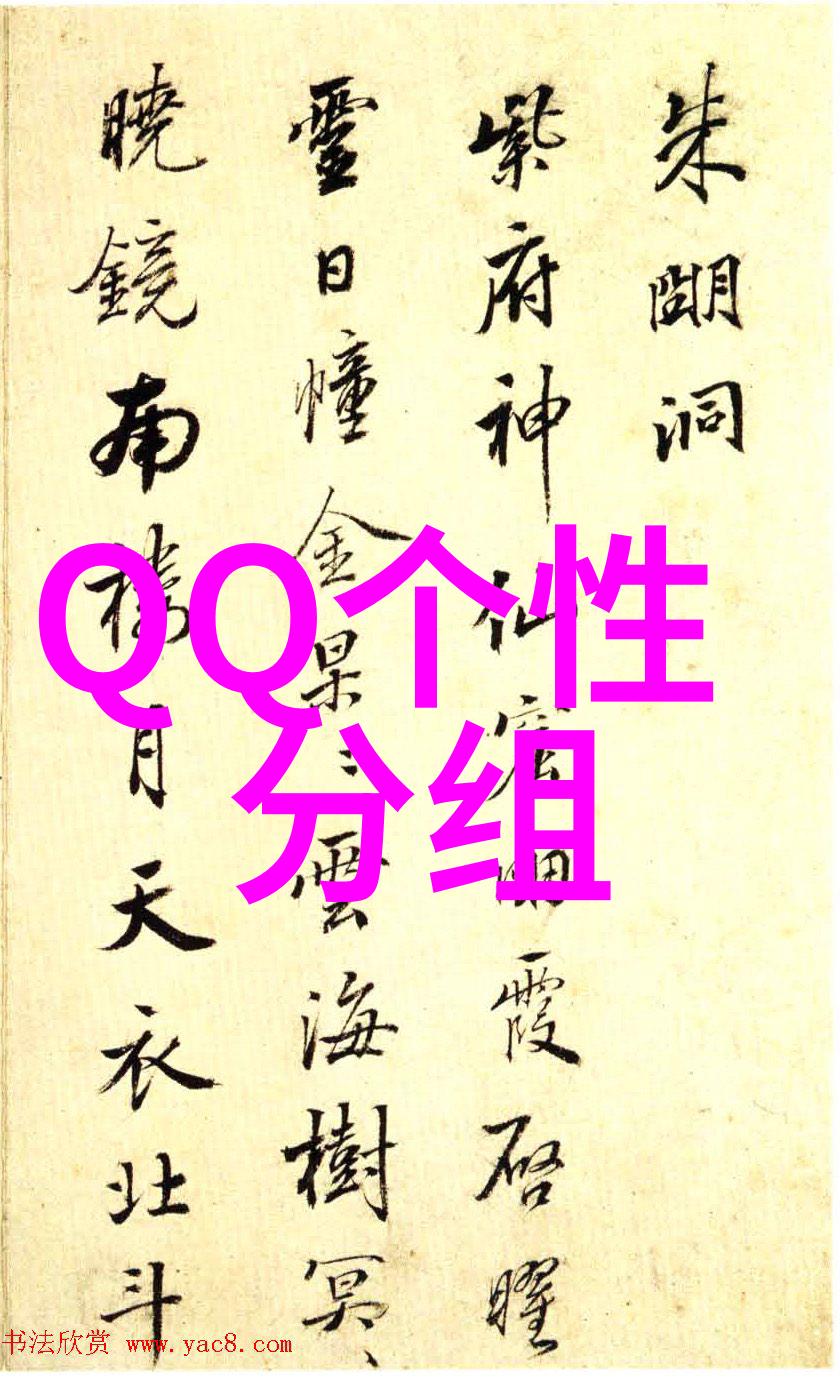 朱朙洞
紫府神仙宅朙霞啓曜
靈日幢金杲〻雲海樹冥〻
曉鏡南樓月天衣北斗
QQ个性
分组
书法欣赏 www.yac8.com